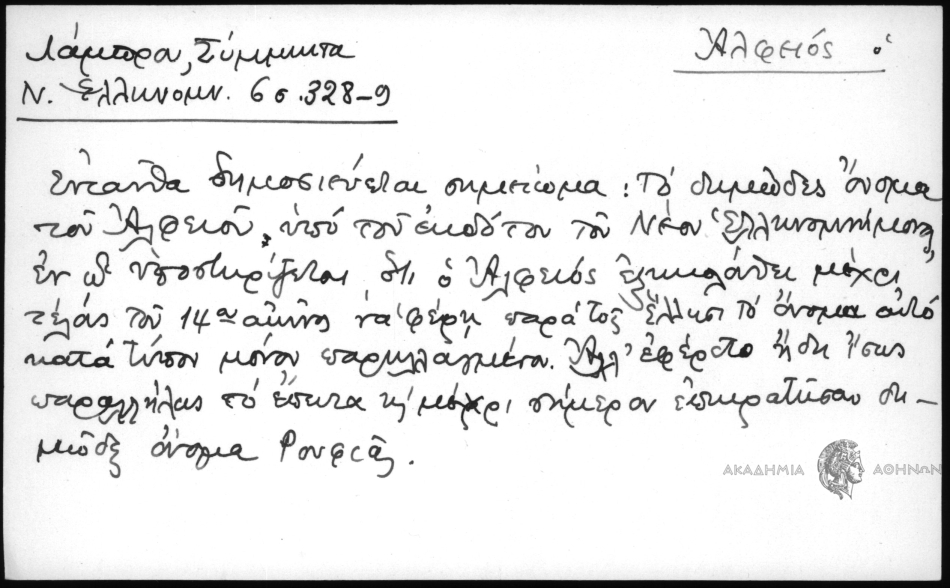 Λάμπρου, Σύμμικτα
Ἀλφειός ὁ
Ν. Ἑλληνομν. 6 σ. 328-9
Ἐνταῦθα δημοσιεύεται σημείωμα: Τό δημῶδες ὄνομα
τοῦ Ἀλφειοῦ, ὑπό τοῦ ἐκδότου τοῦ Νέου Ἑλληνομνήμονος
ἐν ᾧ ὑποστηρίζεται ὅτι ὁ Ἀλφειός ἐξηκολούθει μέχρι
τέλους τοῦ 14ου αἰῶνος νά φέρῃ παρά τοῖς Ἕλλησι τό ὄνομα αὐτό
κατά τύπον μόνον παρηλλαγμένον. Ἀλλ' ἐφέρετο ἤδη ἴσως
παραλλήλως τό ἔπειτα κ' μέχρι σήμερον ἐπικρατῆσαν δη-
μῶδες ὄνομα Ρουφιᾶς.
ΑΚΑΔΗΜΙΑ ΑΘΗΝΩΝ